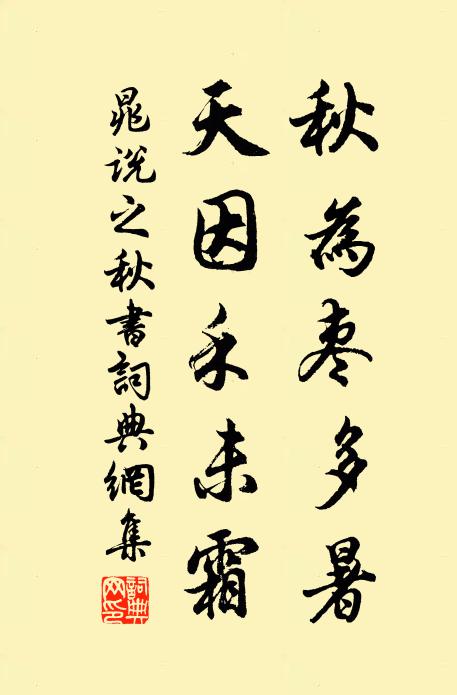 秋為棗多暑
天因禾未霜
晁說之秋書詞典網集
詞典網印